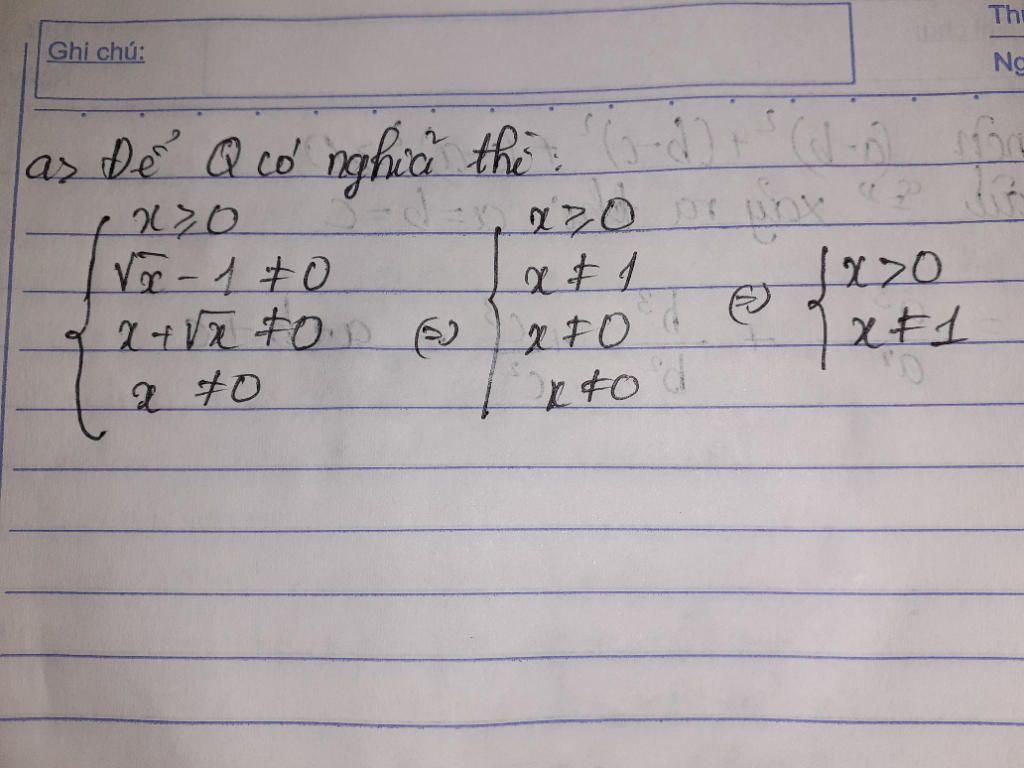 Ghi chú:
Thứ
Ng
a> Để Q có nghĩa thì:
x ≥ 0
√x - 1 ≠ 0
x + √x ≠ 0
x ≠ 0
⇔
x ≥ 0
x ≠ 1
x ≠ 0
x ≠ 0
⇔
x > 0
x ≠ 1